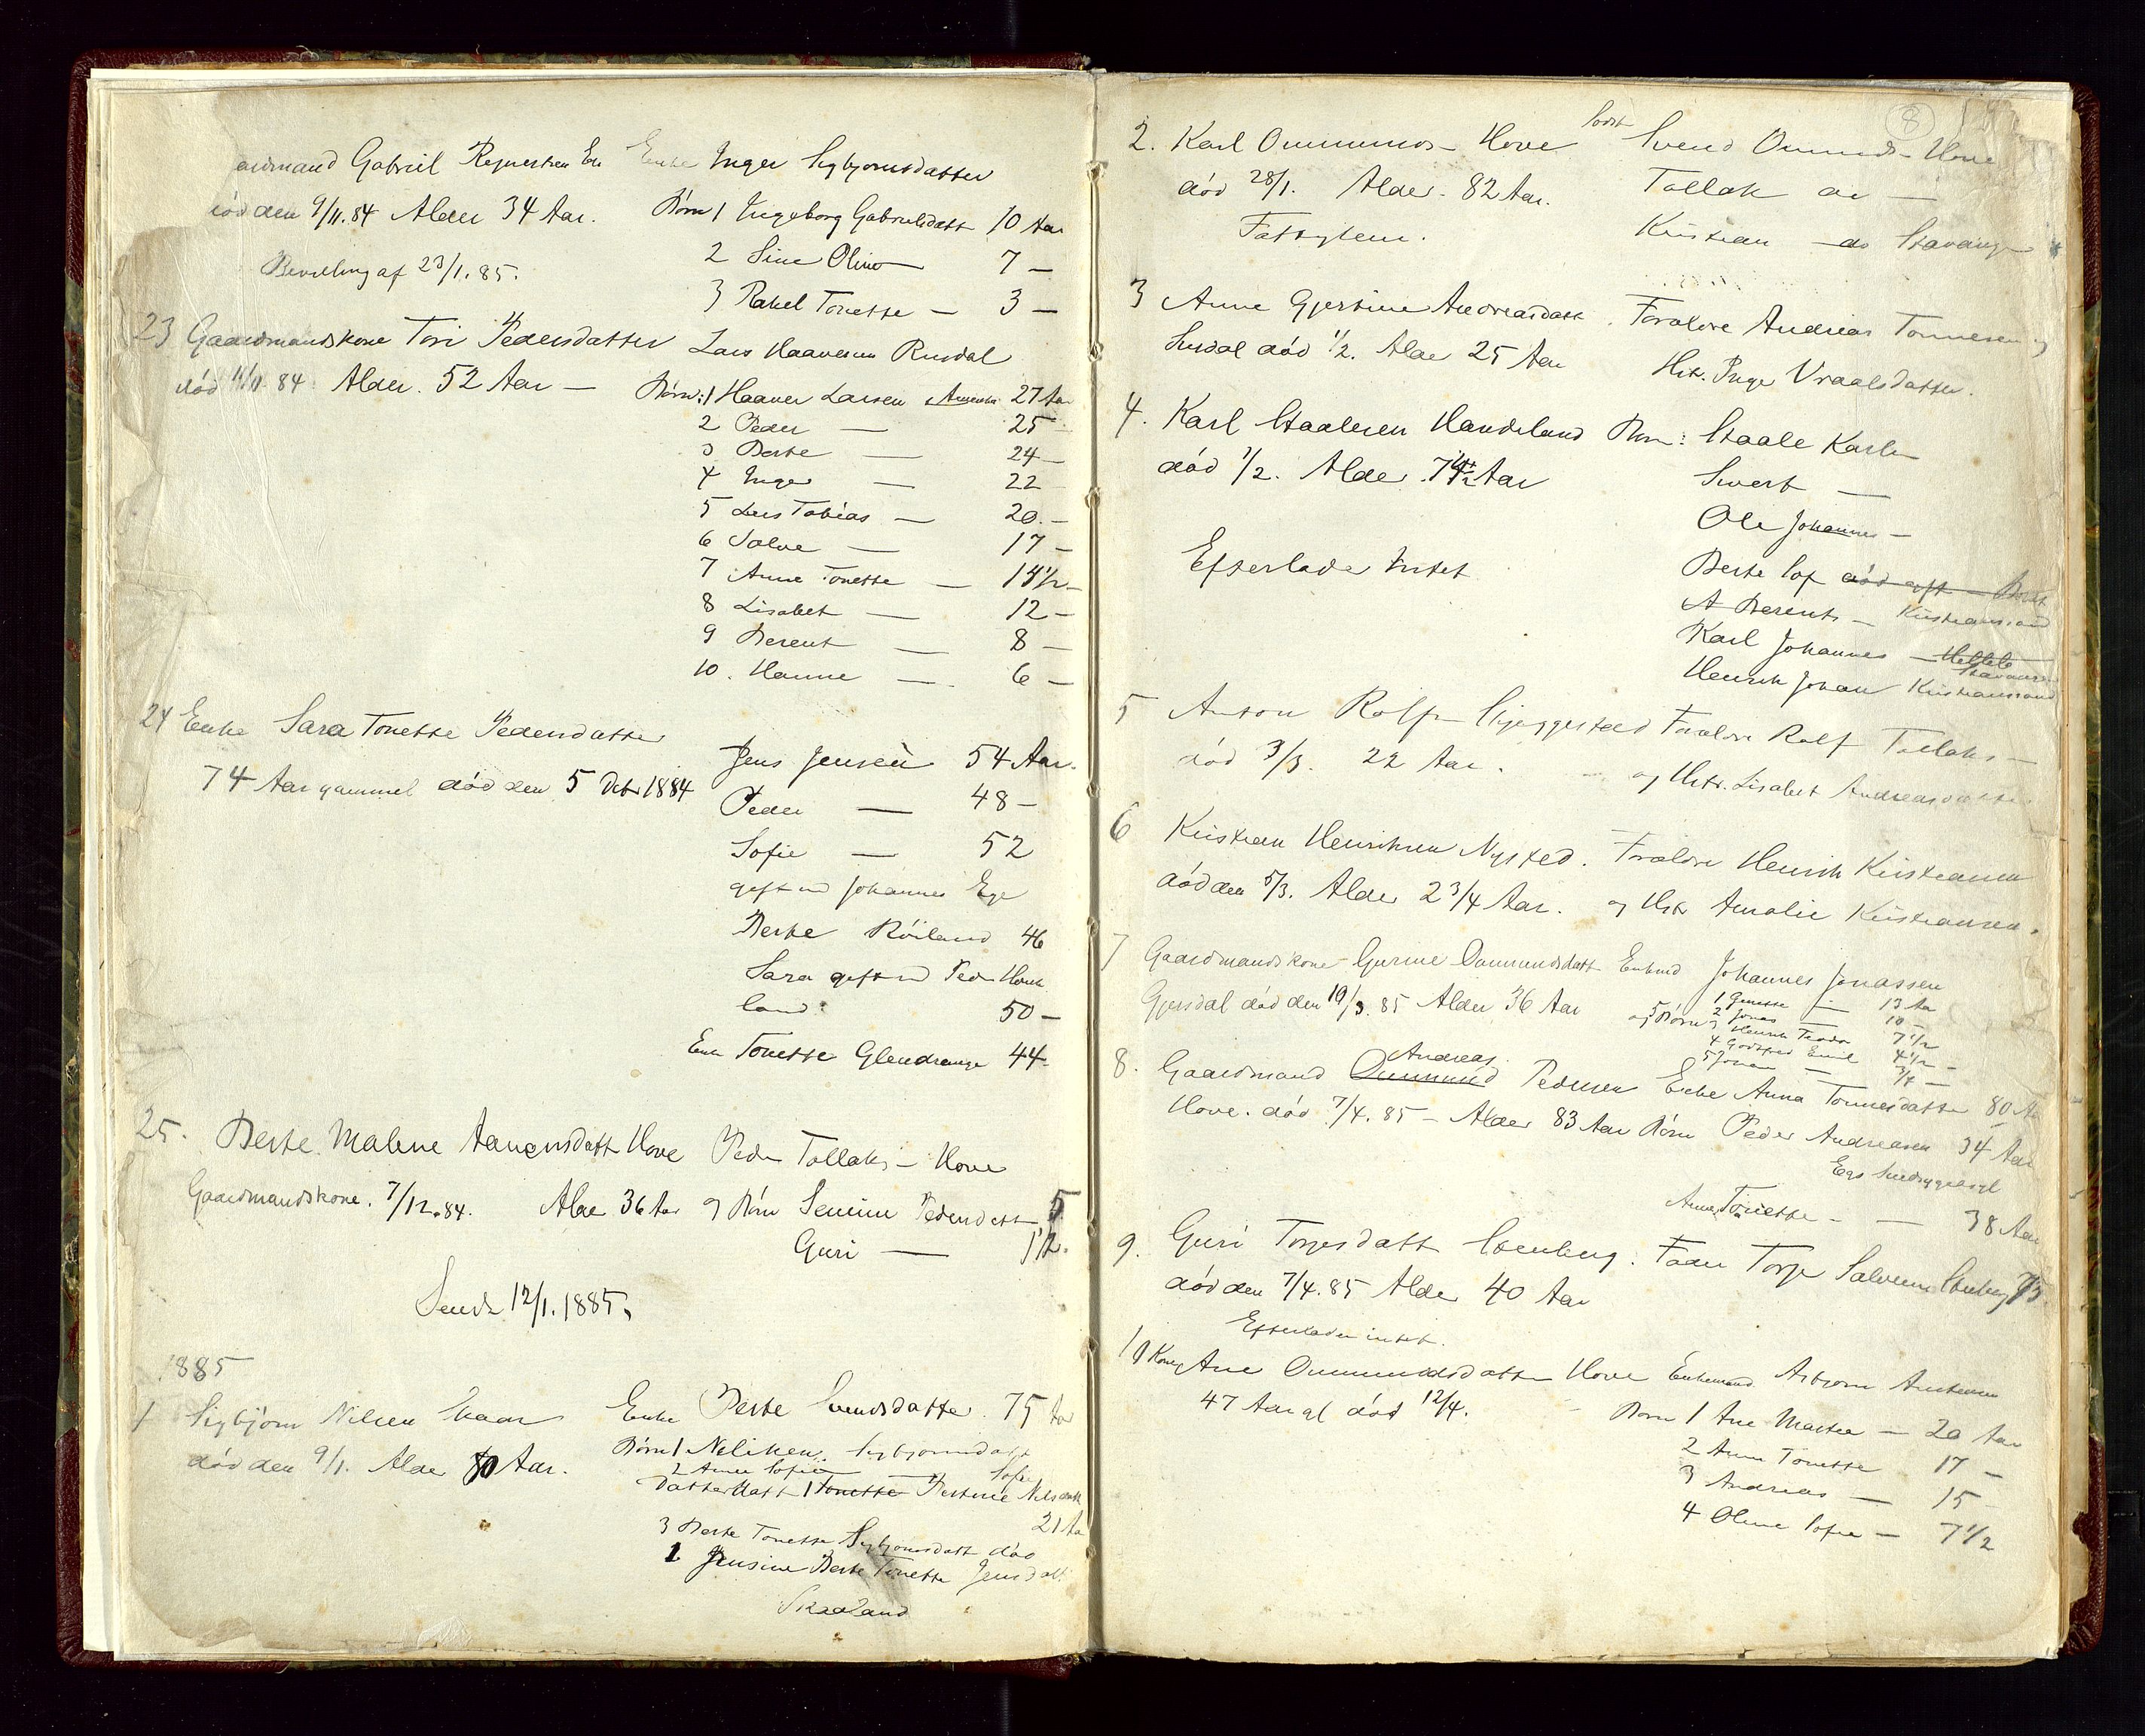 aardmand Gabriel Regnersen Eie Enke Inger Sigbjornsdatter
död den 9/11.84 Alder 34 Aar. Börn 1 Ingeborg Gabrielsdatt 10 Aar
2 Sine Oline — 7 —
Bevilling af 23/1.85.
3 Rakel Tonette — 3 —
23 Gaardmandskone Tori Pedersdatter Lars Haaversen Rusdal
död 11/11 84 Alder. 52 Aar — Börn: 1 Haaver Larsen Amerika 27 Aar
2 Peder — 25 —
3 Berte — 24 —
4 Inger — 22
5 Lars Tobias — 20. —
6 Salve — 17 —
7 Anne Tonette — 14 1/2 —
8 Lisabet — 12 —
9 Berent — 8 —
10. Hanne — 6 —
24 Enke Sara Tonette Pedersdatter
Jens Jensen 54 Aar.
74 Aar gammel död den 5 Dcbr 1884
Peder — 48 —
Sofie — 52
gift m Johannes Ege
Berte Röiland 46
Sara gift m Peder Hauk
land 50 —
Enke Tonette Glendrange 44 —
25. Berte Malene Aanensdatt Hove Peder Tollaks— Hove
Gaardmandskone. 7/12.84. Alder 36 Aar og Börn Semine Pedersdatt 5
Guri — 1 1/2.
Sendt 12/1.1885.
1885
1 Sigbjörn Nilsen Skaar Enke Berte Svendsdatter 75 Aar
död den 9/1. Alder 80 Aar. Börn 1 Neliken Sigbjornsdatt
2 Anne Sofie
Datterdatt 1 Tonette Bertine Nilsdatt
Sofie
21 Aar
3 Berte Tonette Sigbjornsdatt död
1 Jensine Berte Tonette Jensdatt
Skaaland
8
2. Karl Ommunds— Hove Sødsk Svend Ommunds— Hove
död 28/1. Alder. 82 Aar. Tollak do —
Fattiglem. Kristian — do Stavanger
3 Anne Gjertine Andreasdatt. Forældre Andreas Tonnesen og
Lusdal död 1/2. Alder 25 Aar Hstr. Inger Vraalsdatter.
4. Karl Staalesen Handeland Börn: Staale Karls—
död 1/2. Alder 74 1/2 Aar Sivert —
Ole Johannes —
Efterlader Intet
Berte Sof död gift —
A Berent — Kristianssand
Karl Johannes — Stavanger
Henrik Johan Kristianssand
5 Anton Rolfs— Skjeggestad Forældre Rolf Tollaks—
död 3/3. 22 Aar. og Hstr. Lisabet Andreasdatter
6 Kristian Henriksen Nysted. Forældre Henrik Kristiansen
död den 5/3. Alder 2 3/4 Aar. og Hstr Amalie Kristiansen.
7 Gaardmandskone Gurine Ommundsdatt Enkmd Johannes Jonassen
Gjersdal död den 19/3.85 Alder 36 Aar og 5 Börn 1 Ginette — 13 Aar
2 Jonas — 10 —
3 Henrik Teodor 7 1/2
4 Godtfred Emil 4 1/2 —
5 Johan — 3/4 —
8. Gaardmand Ommund Andreas Pedersen Enke Anna Tonnesdatter 80 Aar
Hove. död 7/4.85 — Alder 83 Aar Börn Peder Andreasen 34 Aar
Egs Sindsygeasyl
Anne Tonette — — 38 Aar
9. Guri Torjesdatt Stenberg. Fader Torje Salvesen Stenberg 75
död den 7/4.85 Alder 40 Aar
Efterlader intet.
10 Kone Ane Ommundsdatter Hove Enkemand Asbjorn Antonsen
47 Aar gl död 12/4. Börn 1 Ane Martea — 20 Aar
2 Anne Tonette 17 —
3 Andreas — 15 —
4 Oline Sofie — 7 1/2